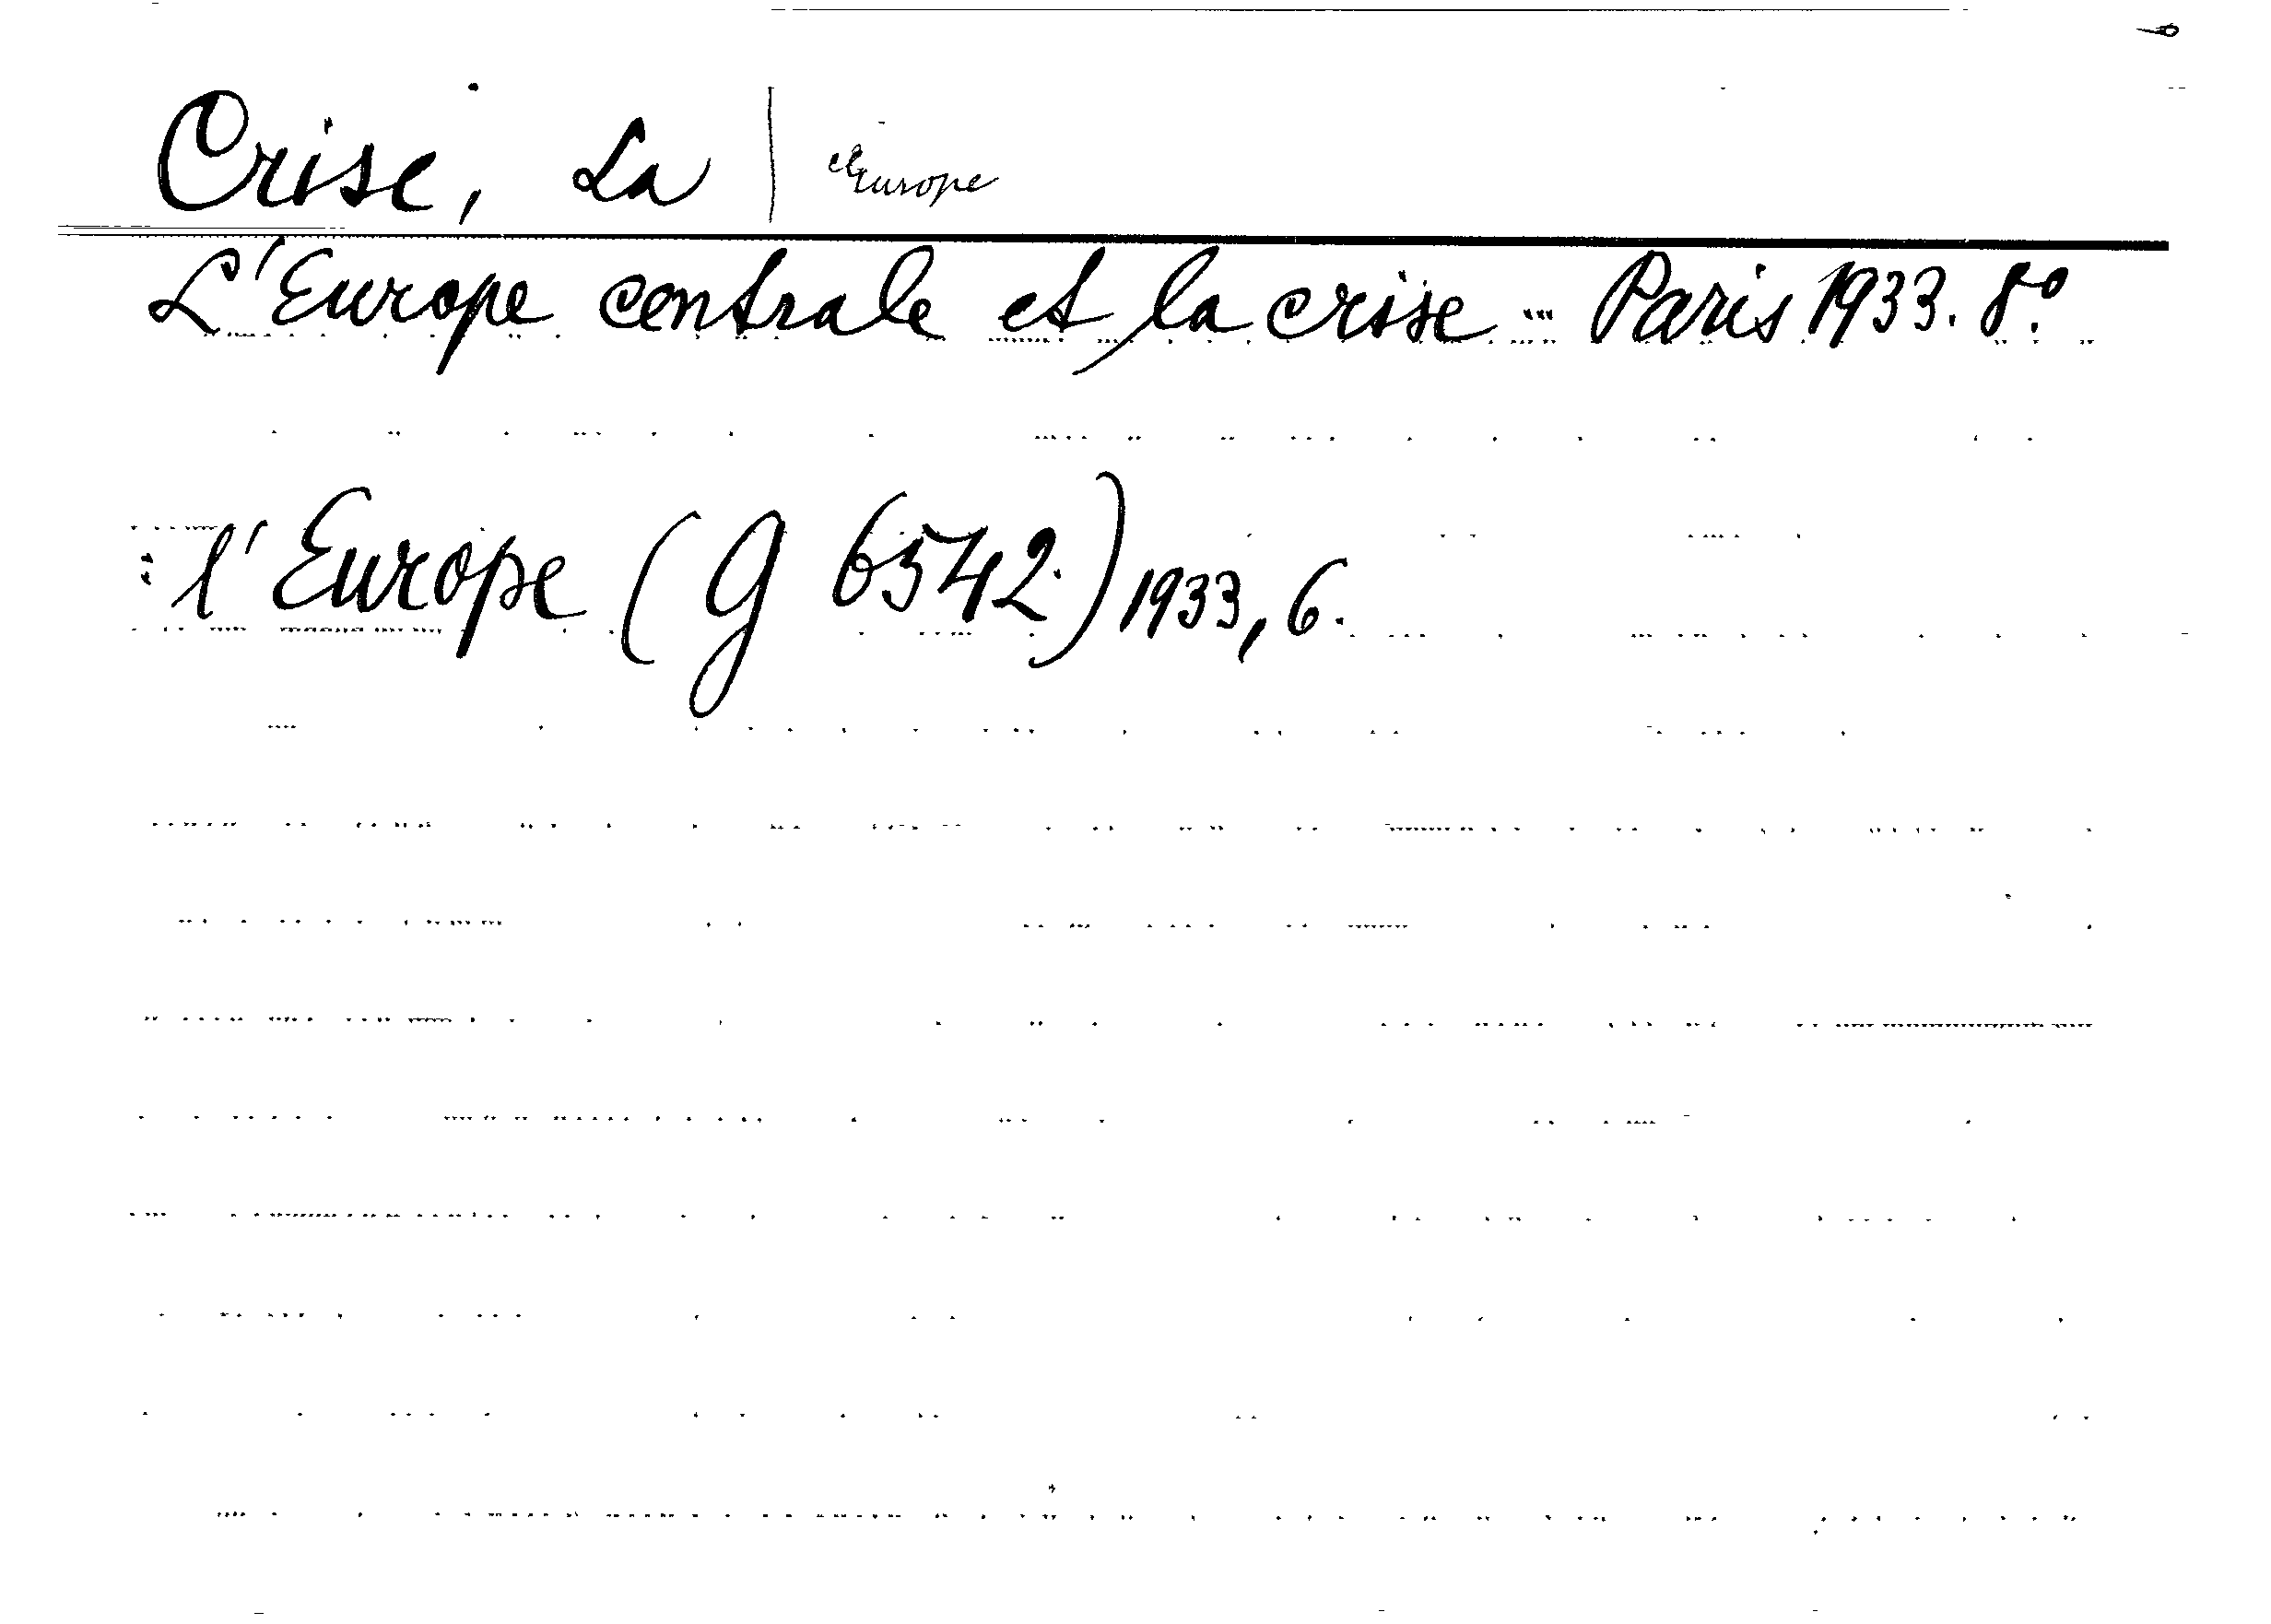 Crise, La | Europe
L'Europe centrale et la crise ... Paris 1933. 8°.
: l'Europe (G 6542.) 1933, 6.